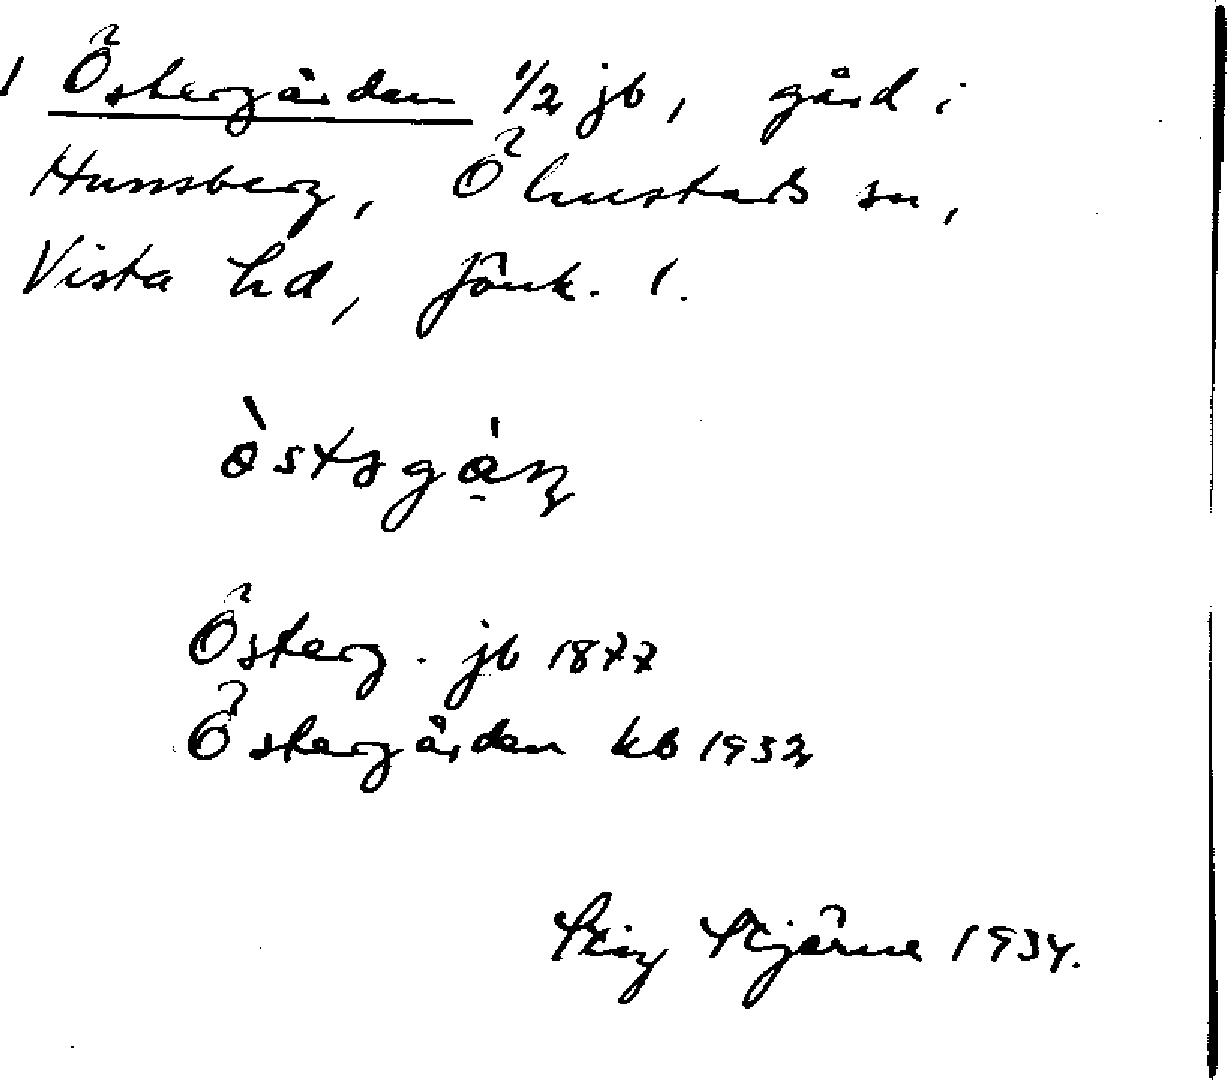 1 Östergården 1/2 jb, gård i
Hunsberg, Ölmstads sn,
Vista hd, Jönk. l.
Österg. jb 1877
Östergården kb 1932
Stig Stjärne 1934.